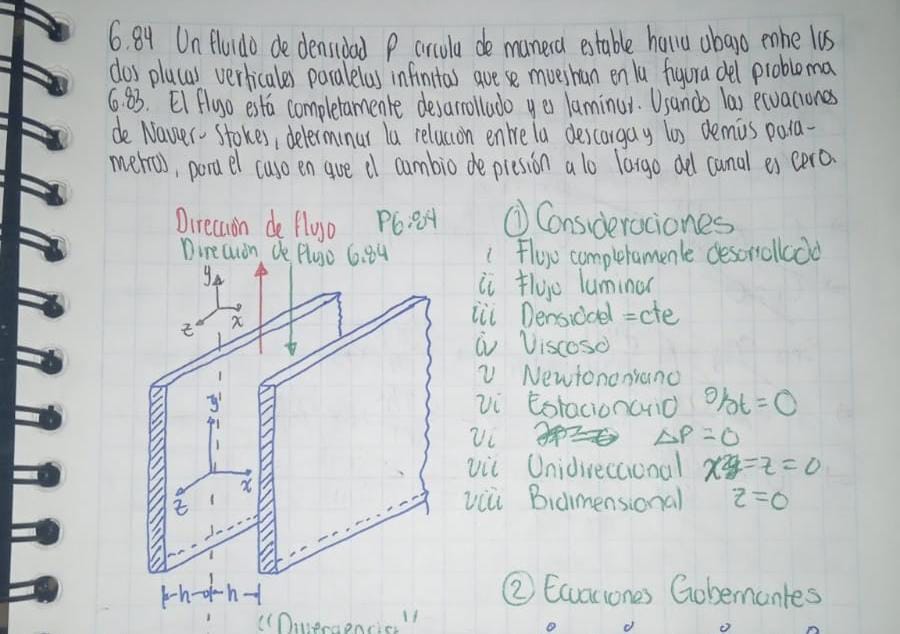 6.84 Un fluido de densidad ρ circula de manera estable hacia abajo entre las
dos placas verticales paralelas infinitas que se muestran en la figura del problema
6.83. El flujo está completamente desarrollado y es laminar. Usando las ecuaciones
de Navier-Stokes, determinar la relación entre la descarga y los demás pará-
metros, para el caso en que el cambio de presión a lo largo del canal es cero.
Dirección de flujo P6.84
Dirección de flujo 6.84
y
z x
y
x
z
h h
"Divergencia"
① Consideraciones
i Flujo completamente desarrollado
ii Flujo laminar
iii Densidad = cte
iv Viscoso
v Newtoneniano
vi Estacionario ∂/∂t = 0
vi ΔP = 0
vii Unidireccional x = z = 0
viii Bidimensional z = 0
② Ecuaciones Gobernantes